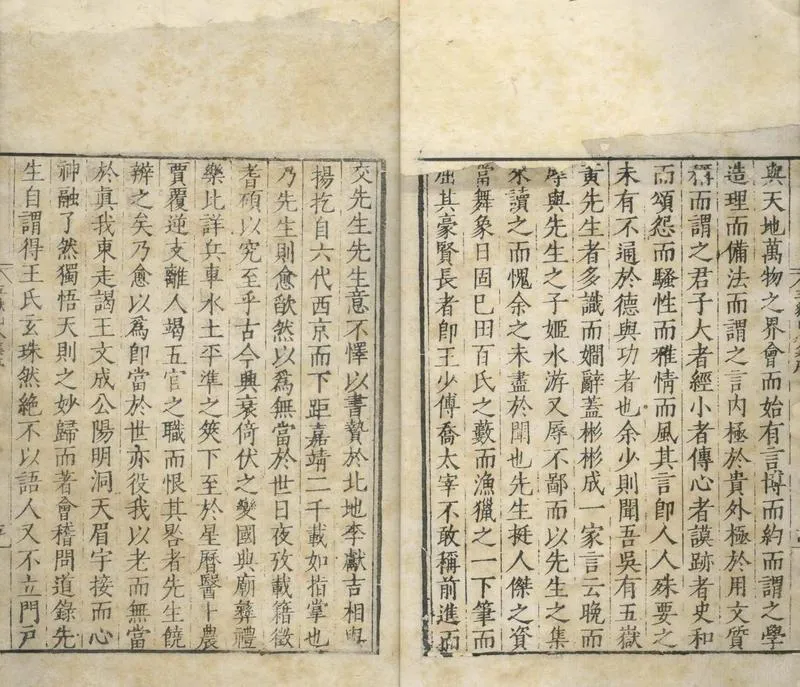 與天地萬物之界會而始有言博而約而謂之學
造理而備法而謂之言內極於貴外極於用文質
稱而謂之君子大者經小者傳心者謨跡者史和
而頌怨而騷性而雅情而風其言卽人人殊要之
未有不通於德與功者也余少則聞吾吳有五嶽
黃先生者多識而嫺辭蓋彬彬成一家言云晚而
與先生之子姬水游又辱不鄙而以先生之集
讀之而愧余之未盡於聞也先生挺人傑之資
當舞象日固巳田百氏之藪而漁獵之一下筆而
屈其豪賢長者卽王少傅喬太宰不敢稱前進而
交先生先生意不懌以書贄於北地李獻吉相
揚扢自六代西京而下距嘉靖二千載如指掌也
乃先生則愈欿然以爲無當於世日夜孜載籍徵
耆碩以究至乎古今興衰倚伏之變國典廟彝禮
樂比詳兵車水土平準之筴下至於星曆醫卜農
賈覆逆支離人竭五官之職而恨其畧者先生饒
辨之矣乃愈以爲卽當於世亦役我以老而無當
於眞我東走謁王文成公陽明洞天眉宇接而心
神融了然獨悟天則之妙歸而著會稽問道錄先
生自謂得王氏玄珠然絕不以語人又不立門戸